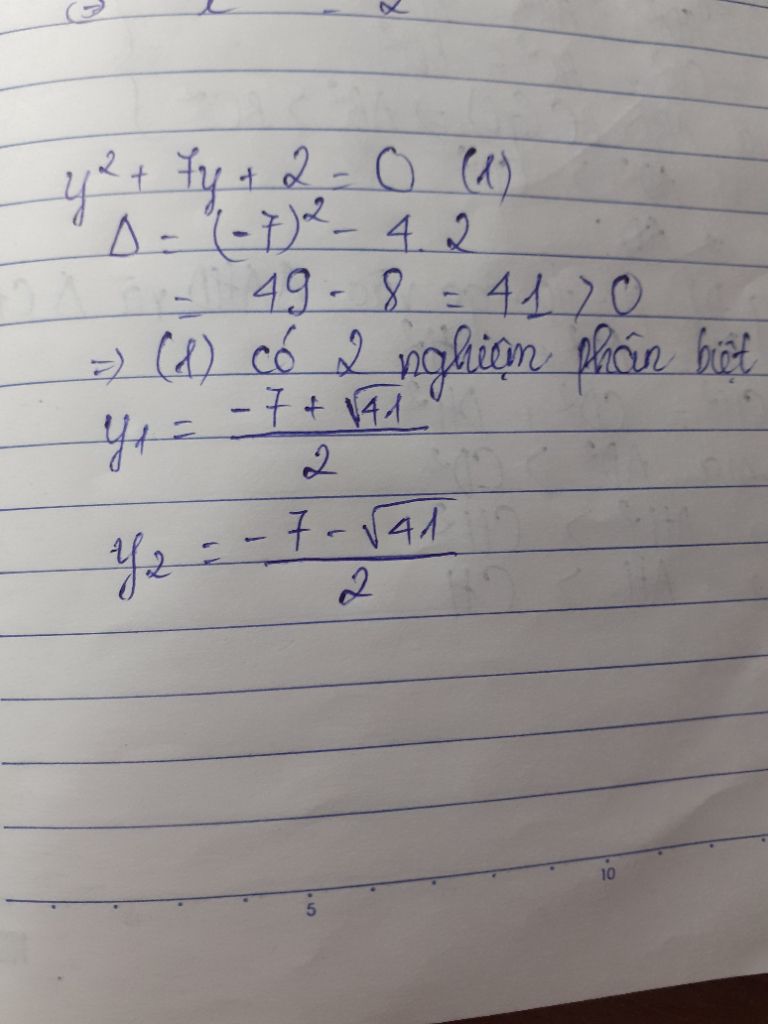 y² + 7y + 2 = 0 (1)
Δ = (-7)² - 4.2
= 49 - 8 = 41 > 0
=> (1) có 2 nghiệm phân biệt
y₁ = (-7 + √41)/2
y₂ = (-7 - √41)/2
5 10